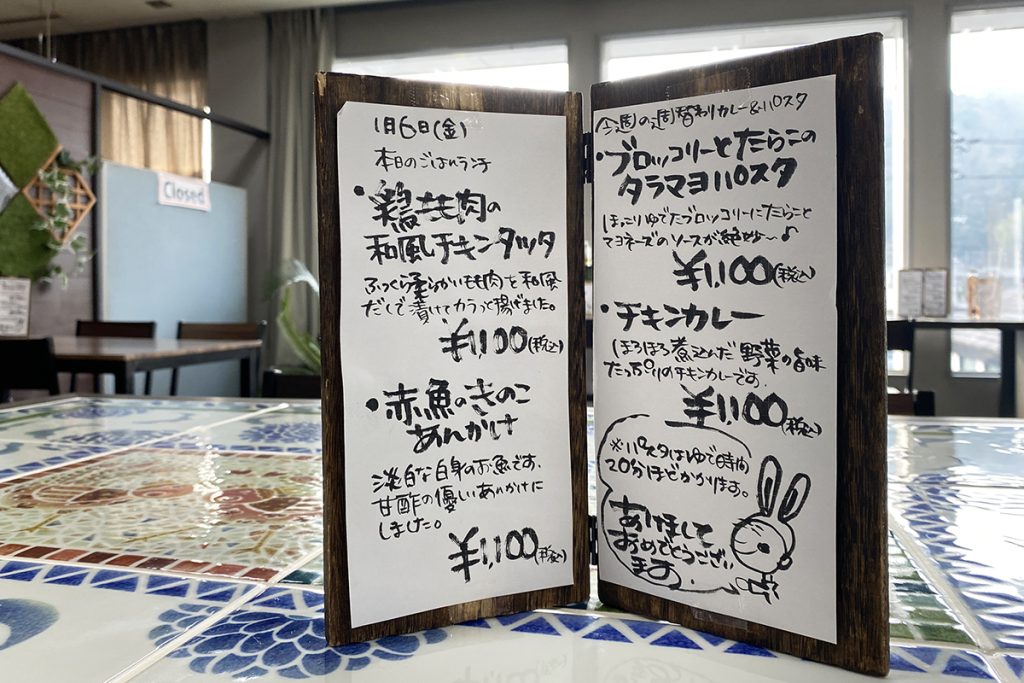 Closed
1月6日(金)
本日のごはんランチ
・鶏もも肉の
和風チキンタツタ
ふっくら柔らかいもも肉を和風
だしで漬けてカラっと揚げました。
¥1,100(税込)
・赤魚のきのこ
あんかけ
淡白な白身のお魚です。
甘酢の優しいあんかけに
しました。
¥1,100(税込)
今週の週替わりカレー&パスタ
・ブロッコリーとたらこの
タラマヨパスタ
ほっこりゆでたブロッコリーにたらこと
マヨネーズのソースが絶妙〜♪
¥1,100(税込)
・チキンカレー
ほろほろ煮込んだ野菜の旨味
たっぷりのチキンカレーです。
¥1,100(税込)
※パスタはゆで時間
20分ほどかかります。
あけまして
おめでとうござい
ます。